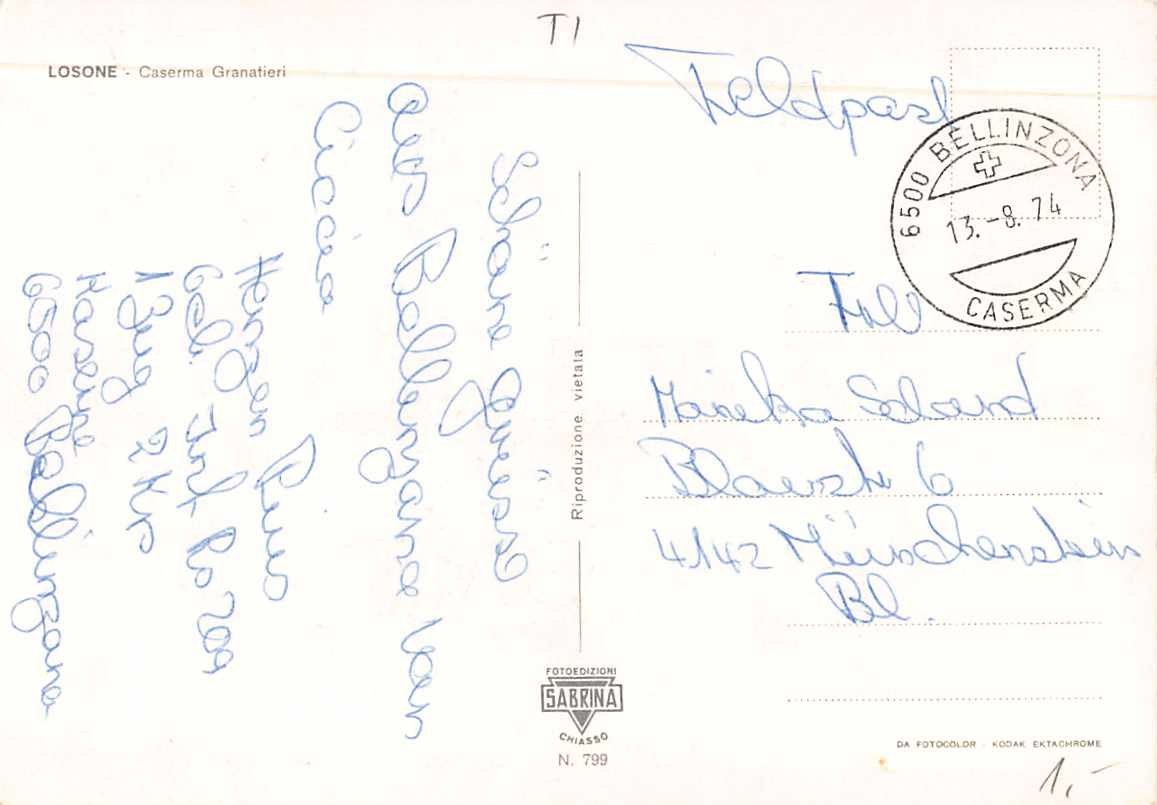 TI
LOSONE - Caserma Granatieri
Feldpost
6500 BELLINZONA
13.-8.74
CASERMA
Frl
Soland
6
4142 Münchenstein
Bl.
Schöne Grüsse
aus Bellinzona von
Herzog
Inf. Rs 209
1 Zug 2 Kp
Kaserne
6500 Bellinzona
Riproduzione vietata
FOTOEDIZIONI
SABRINA
CHIASSO
N. 799
DA FOTOCOLOR - KODAK EKTACHROME
1.-